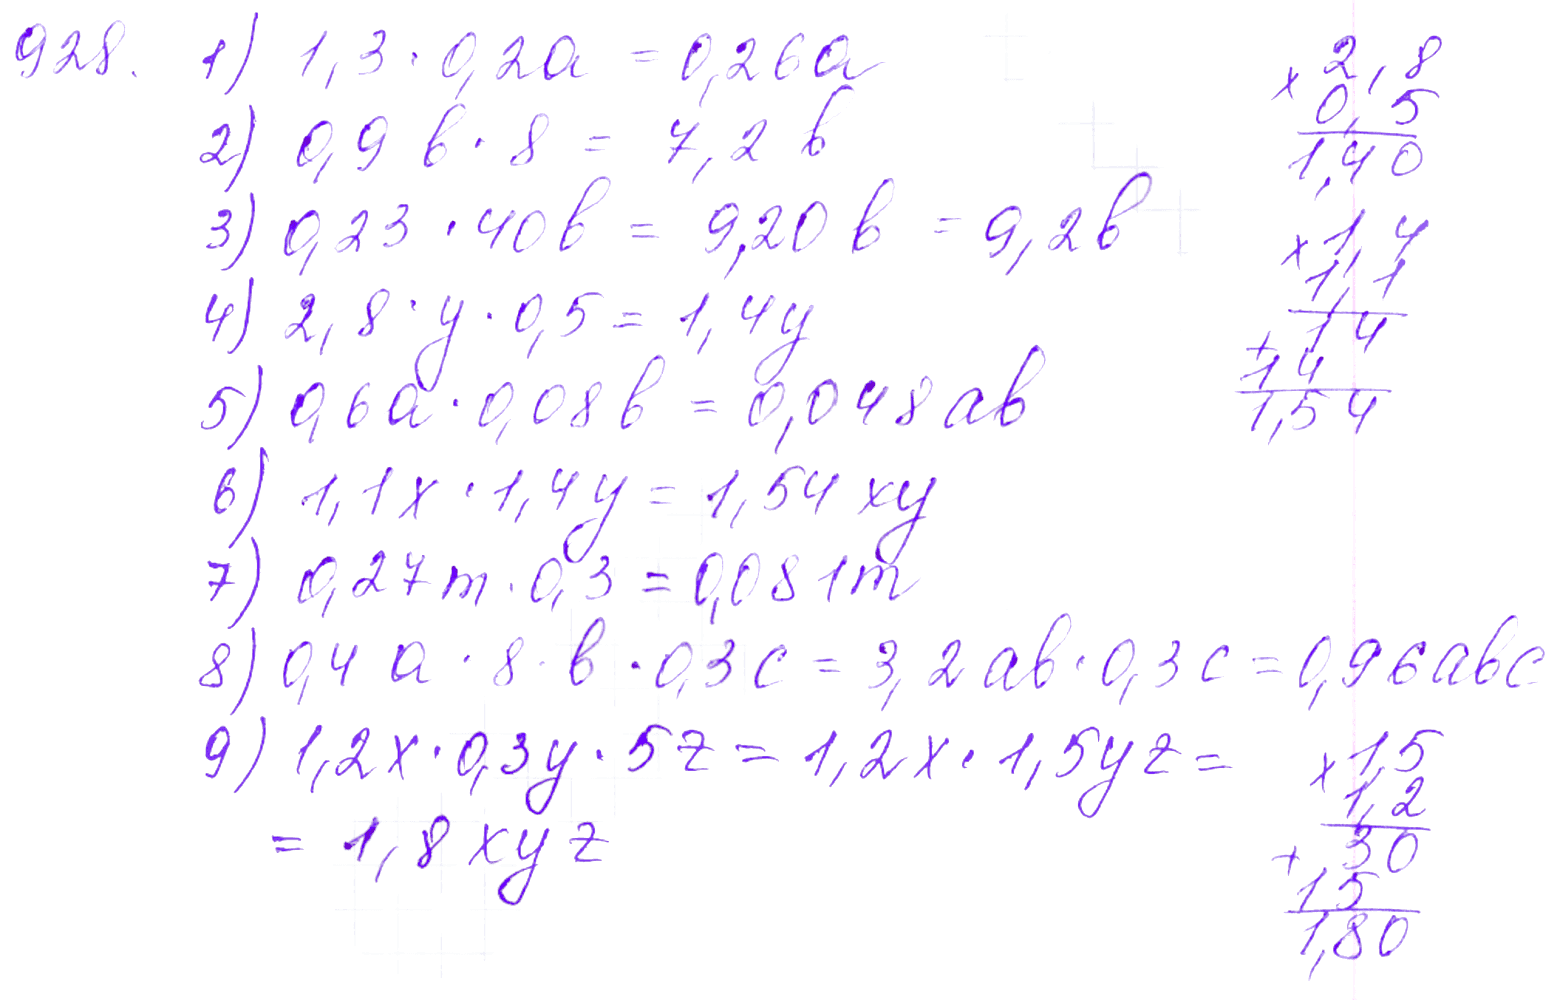 928. 1) 1,3 · 0,2a = 0,26a
2) 0,9 b · 8 = 7,2 b
3) 0,23 · 40b = 9,20 b = 9,2b
4) 2,8 · y · 0,5 = 1,4y
5) 0,6a · 0,08b = 0,048ab
6) 1,1x · 1,4y = 1,54xy
7) 0,27m · 0,3 = 0,081m
8) 0,4a · 8 · b · 0,3c = 3,2ab · 0,3c = 0,96abc
9) 1,2x · 0,3y · 5z = 1,2x · 1,5yz =
= 1,8xyz
× 2,8
0,5
1,40
× 1,4
1,1
14
+
14
1,54
× 1,5
1,2
+ 30
15
1,80